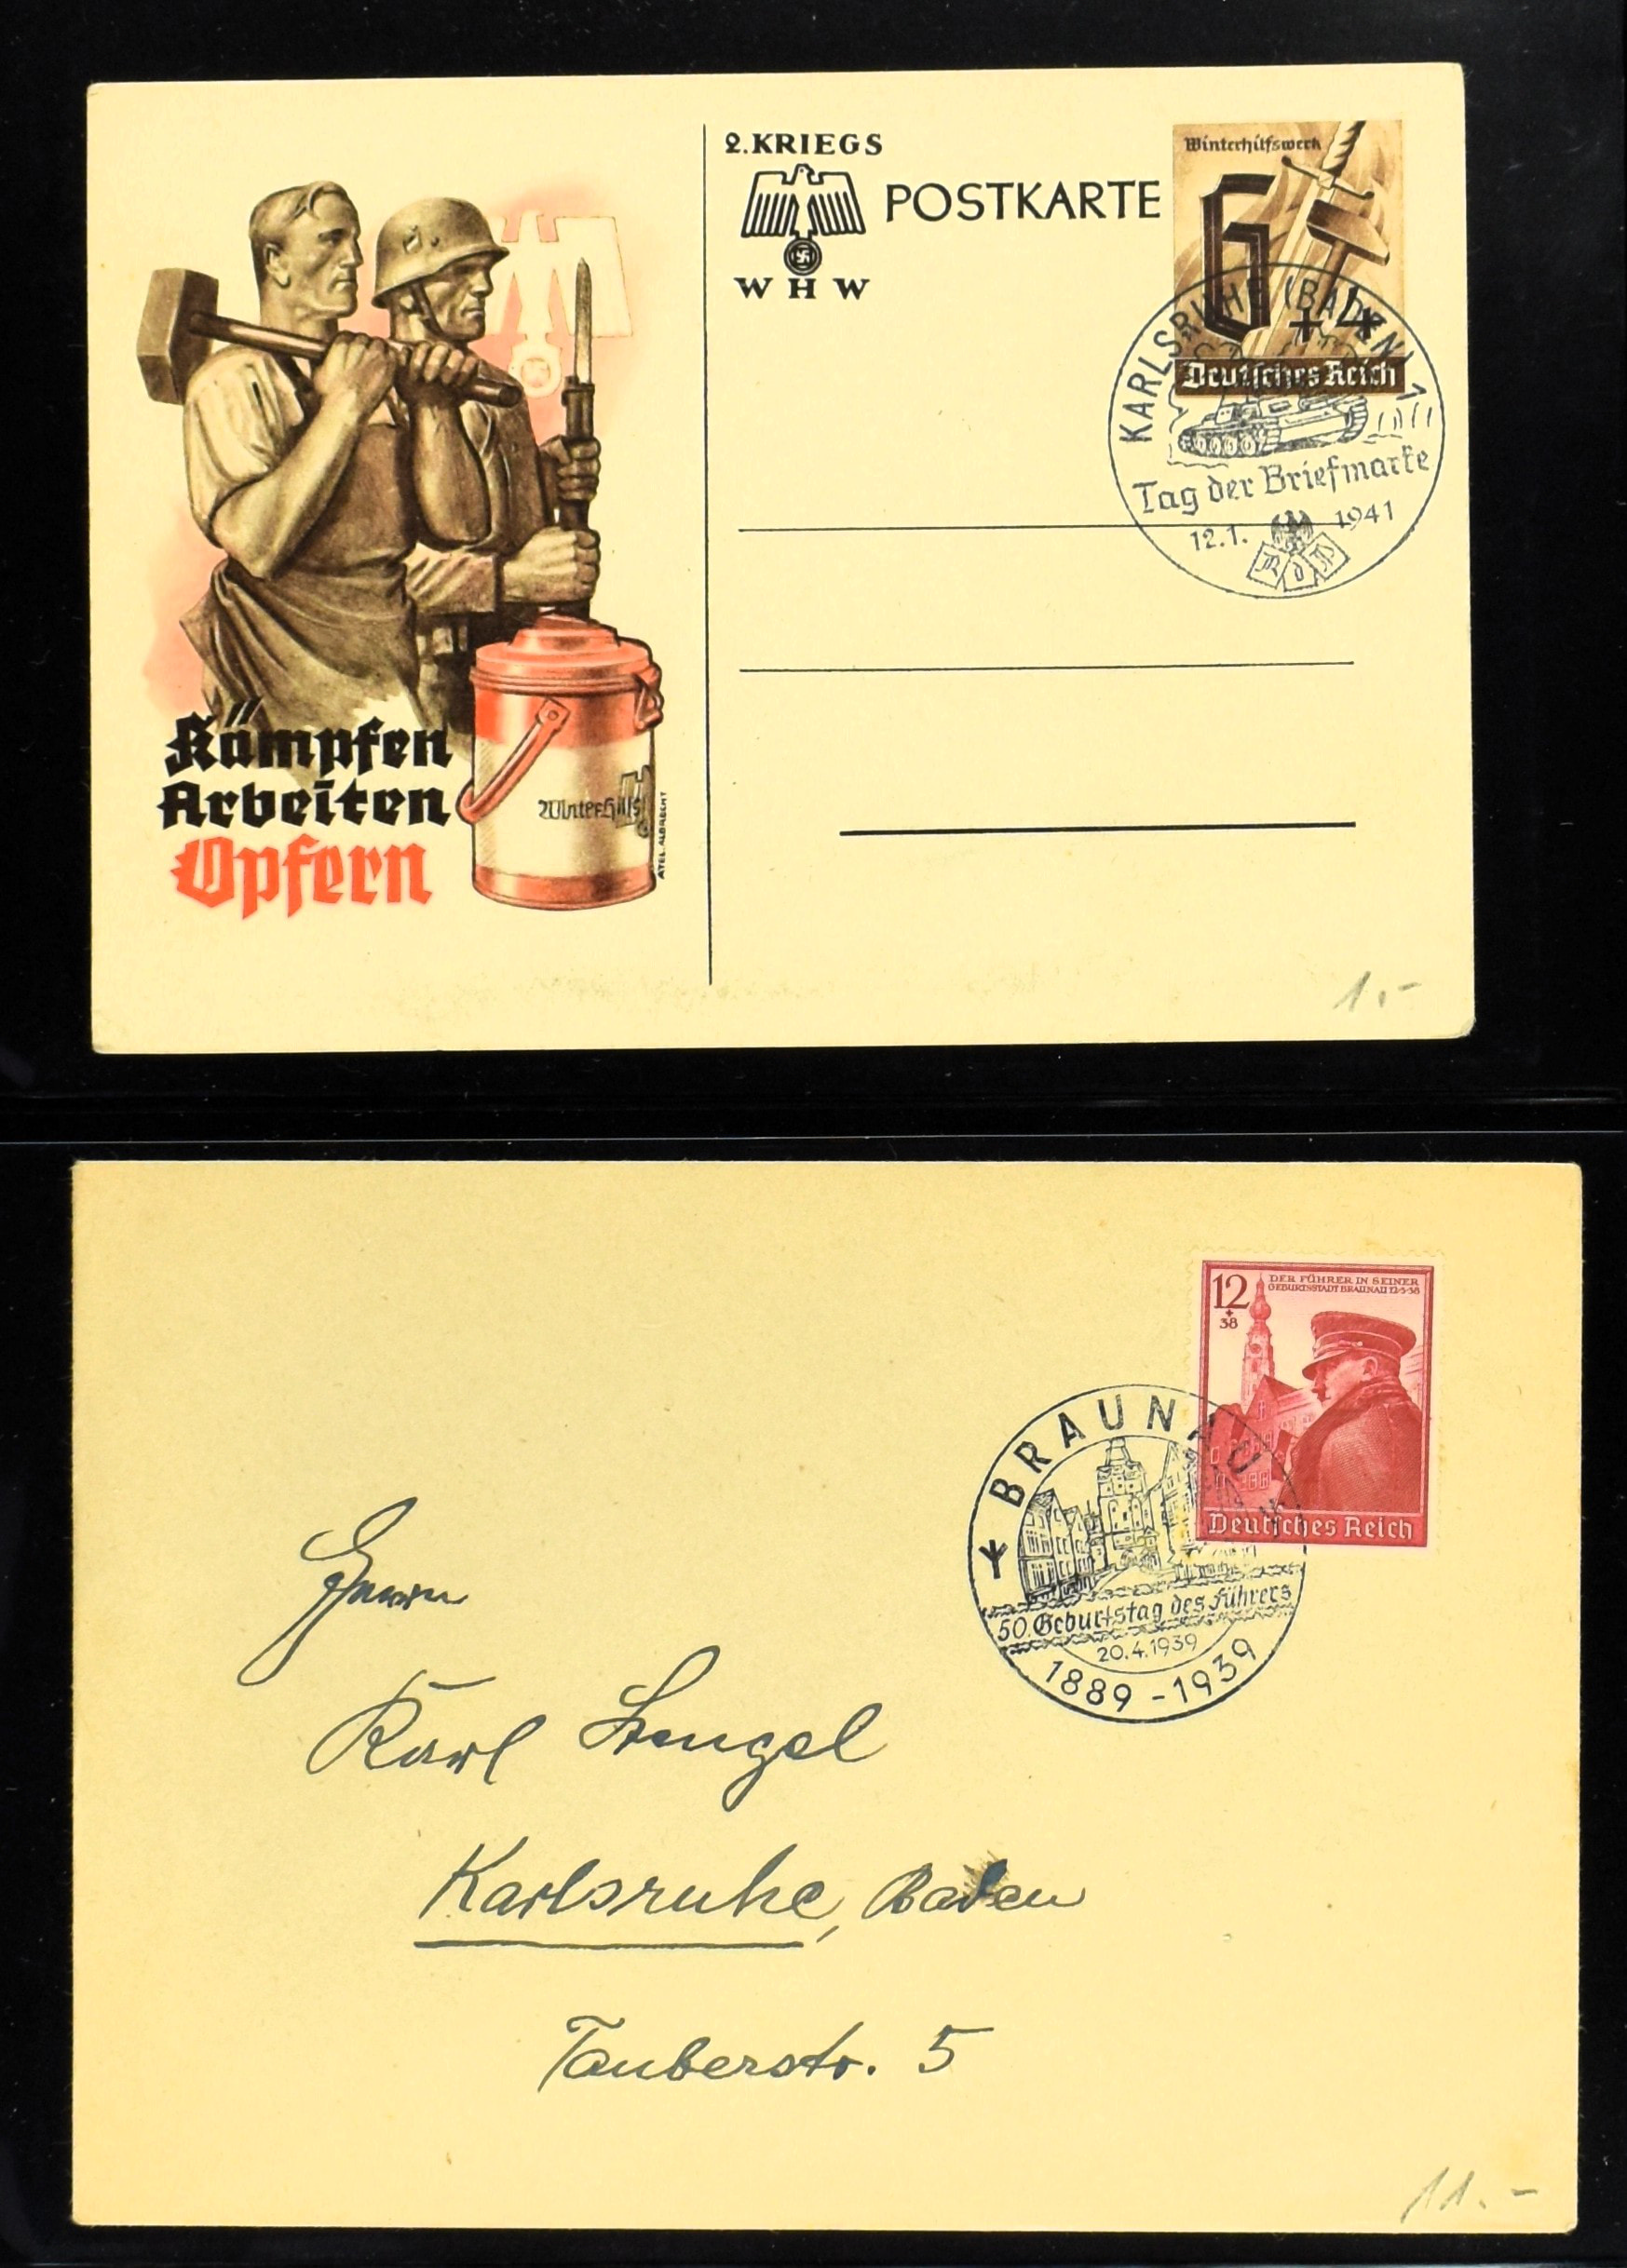 2. KRIEGS
WHW
POSTKARTE
Winterhilfswerk
6+4
Deutsches Reich
KARLSRUHE (BADEN) 1
Tag der Briefmarke
12.1. 1941
R d P
Kämpfen
Arbeiten
Opfern
Winterhilfs
ATEL. ALBRECHT
1.-
12
+
38
DER FÜHRER IN SEINER
GEBURTSSTADT BRAUNAU 12·3·38
Deutsches Reich
BRAUNAU
50. Geburtstag des Führers
20.4.1939
1889-1939
Herrn
Karl Stengel
Karlsruhe, Baden
Tauberstr. 5
11.-